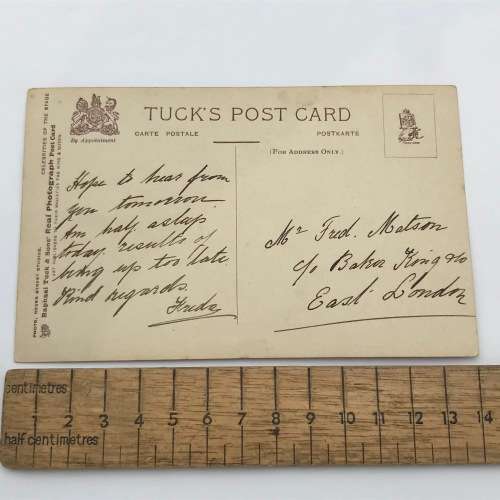 TUCK'S POST CARD
CARTE POSTALE
POSTKARTE
(FOR ADDRESS ONLY.)
By Appointment
CELEBRITIES OF THE STAGE
Raphael Tuck & Sons' Real Photograph Post Card
PHOTO,
STREET STUDIOS.
Hope to hear from
you tomorrow.
Am half asleep
today. results of
being up too late
Kind regards.
Freda
Mr Fred. Matson
c/o Baker King & Co
East London
centimetres
1 2 3 4 5 6 7 8 9 10 11 12 13 14
half centimetres